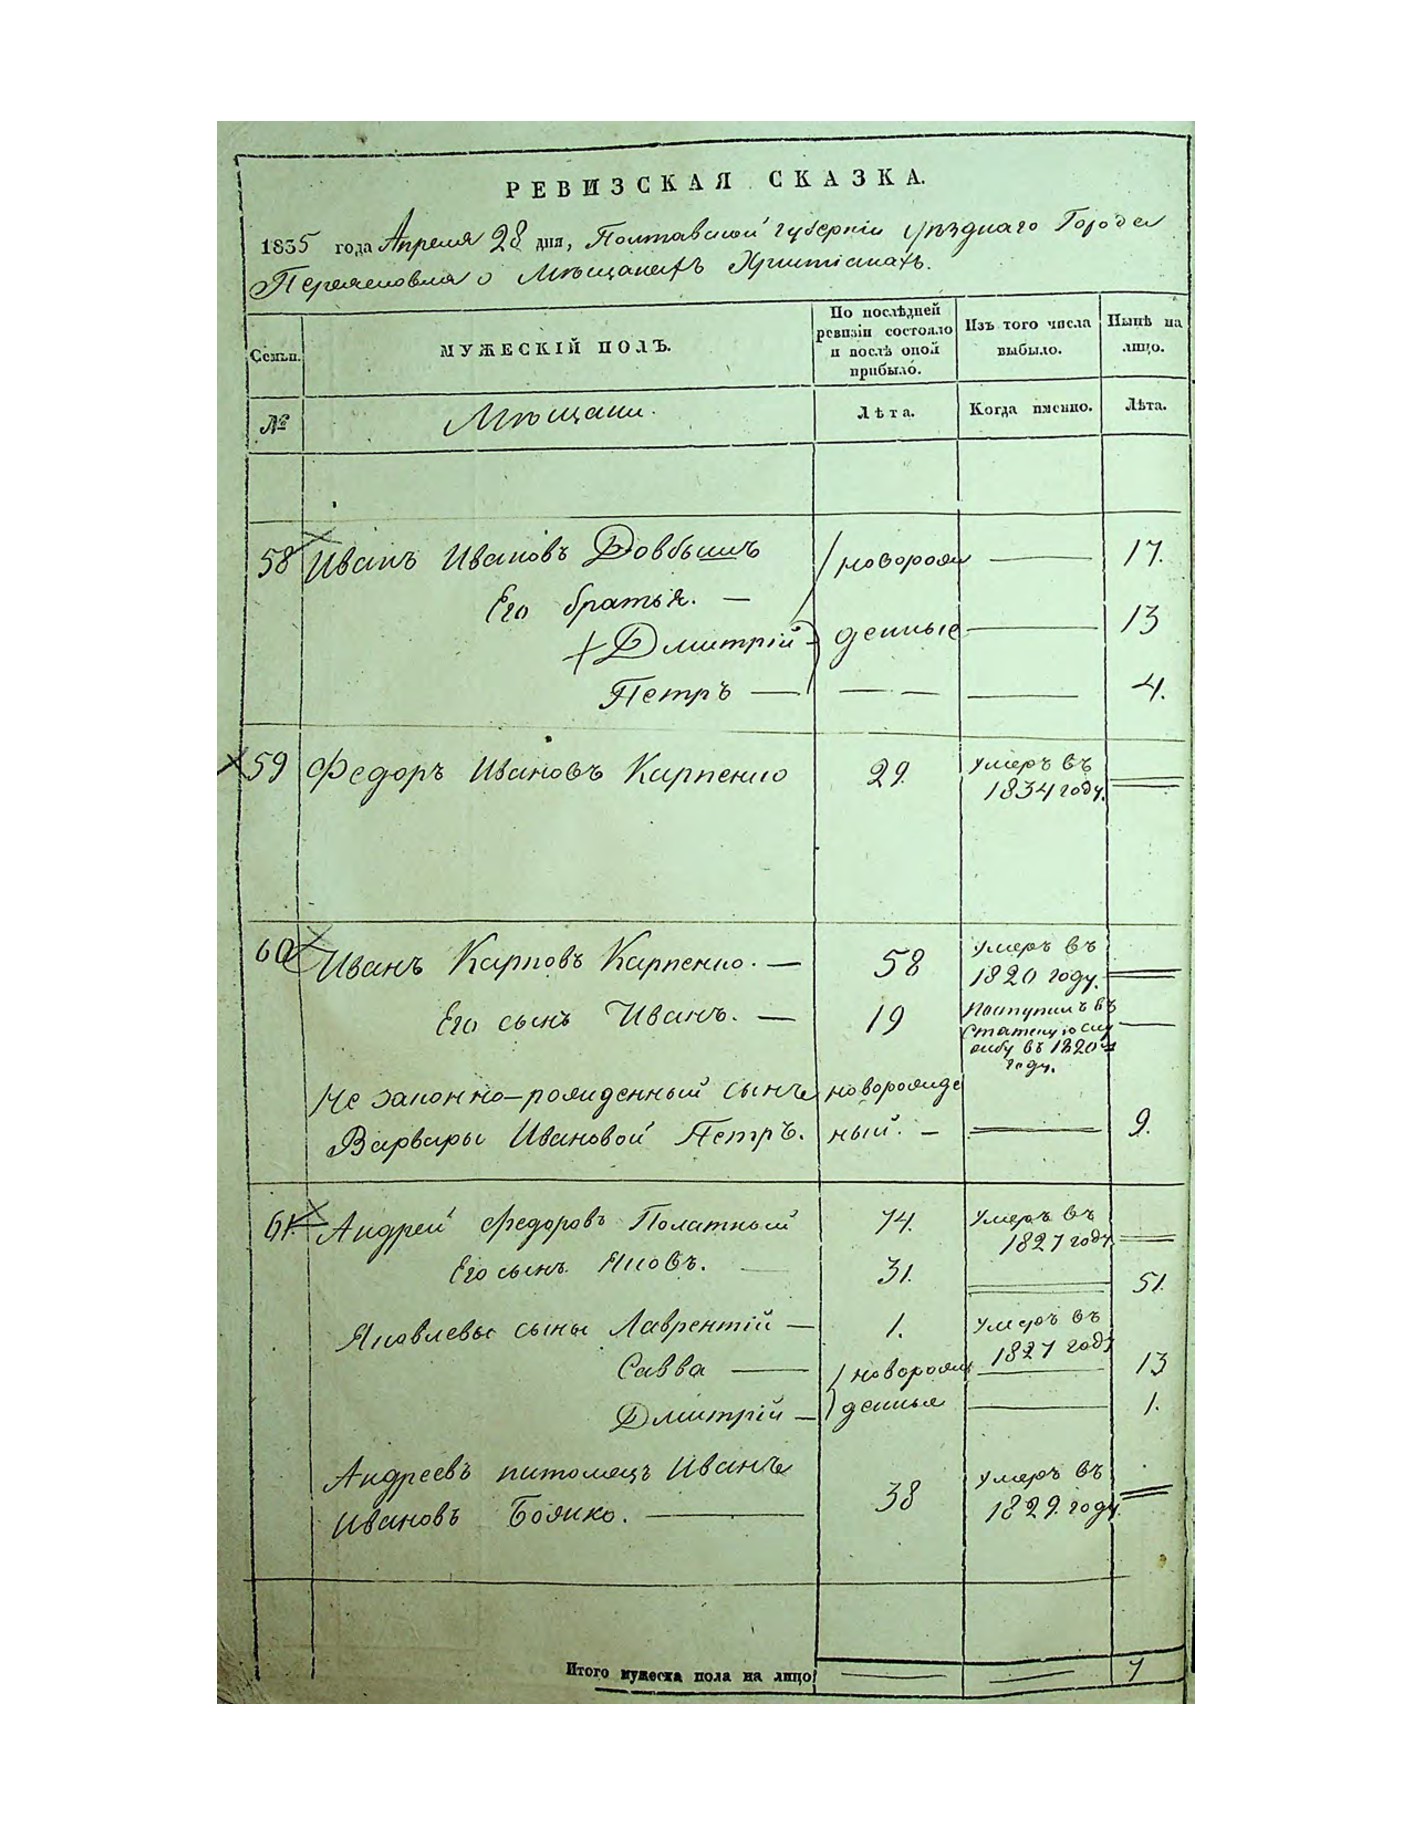 РЕВИЗСКАЯ СКАЗКА.
1835 года Апреля 28 дня, Полтавской губерніи уѣзднаго Города
Переяслова о Мѣщанахъ Христіанахъ.
Семьи.
МУЖЕСКІЙ ПОЛЪ.
По послѣдней ревизіи состояло и послѣ оной прибыло.
Изъ того числа выбыло.
Нынѣ на лицо.
№ Мѣщани. Лѣта. Когда именно. Лѣта.
58 Иванъ Ивановъ Довбышъ новорож 17.
Его братья. —
Дмитрій денные 13
Петръ — 4.
59 Федоръ Ивановъ Карпенко 29. Умеръ въ
1834 году.
60 Иванъ Карповъ Карпенко. — 58 Умеръ въ
1820 году.
Его сынъ Иванъ. — 19 Поступилъ въ
Статскую слу
жбу въ 1820 м
году.
Не законно-рожденный сынъ новорожде
Варвары Ивановой Петръ. ный. — 9.
61. Андрей Федоровъ Полатный 74. Умеръ въ
1827 году.
Его сынъ Яковъ. 31. 51.
Яковлевы сыны Лаврентій — 1. Умеръ въ
1827 году
Савва — новорож 13
Дмитрій — денные 1.
Андреевъ питомецъ Иванъ
Ивановъ Божко. 38 Умеръ въ
1829. году.
Итого мужеска пола на лицо 7